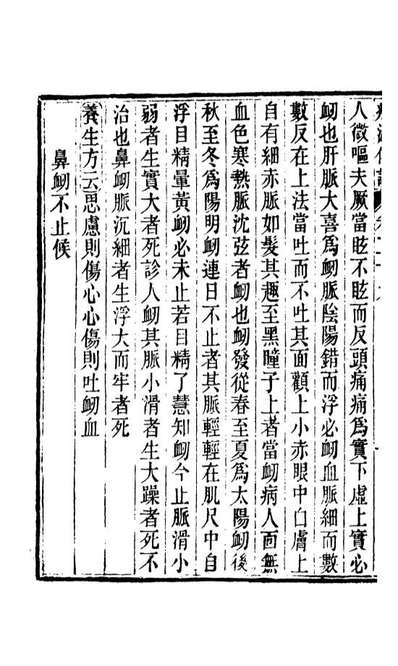 人微嘔夫厥當眩不眩而反頭痛痛爲實下虛上實必
衂也肝脈大喜爲衂脈陰陽錯而浮必衂血脈細而數
數反在上法當吐而不吐其面顴上小赤眼中白膚上
自有細赤脈如髮其趣至黑瞳子上者當衂病人面無
血色寒熱脈沈弦者衂也衂發從春至夏爲太陽衂後
秋至冬爲陽明衂連日不止者其脈輕輕在肌尺中自
浮目精暈黃衂必未止若目精了慧知衂今止脈滑小
弱者生實大者死診人衂其脈小滑者生大躁者死不
治也鼻衂脈沉細者生浮大而牢者死
養生方云思慮則傷心心傷則吐衂血
鼻衂不止候